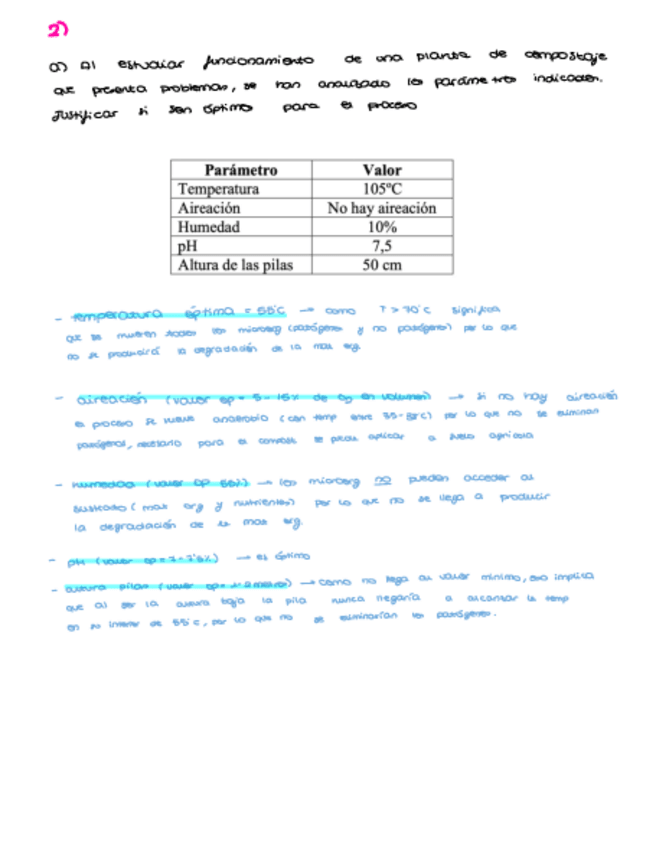 2)
a) Al estudiar funcionamiento de una planta de compostaje
que presenta problemas, se han analizado los parámetros indicados.
Justificar si son óptimos para el proceso
Parámetro Valor
Temperatura 105ºC
Aireación No hay aireación
Humedad 10%
pH 7,5
Altura de las pilas 50 cm
- temperatura óptima = 55ºC → como T > 70ºC significa
que se mueren todos los microorg (patógenos y no patógenos) por lo que
no se producirá la degradación de la mat org.
- aireación (valor op = 5 - 15% de O2 en volumen) → si no hay aireación
el proceso se vuelve anaerobio (con temp entre ) por lo que no se eliminan
patógenos, necesario para el se pueda aplicar a suelo agrícola
- humedad (valor op 55%) → los microorg no pueden acceder al
sustrato (mat org y nutrientes) por lo que no se llega a producir
la degradación de la mat org.
- pH (valor op = ) → es óptimo
- altura pilas (valor op = metros) → como no llega al valor mínimo, eso implica
que al ser la altura baja la pila nunca llegaría a alcanzar la temp
en su interior de 55ºC, por lo que no se eliminarían los patógenos.